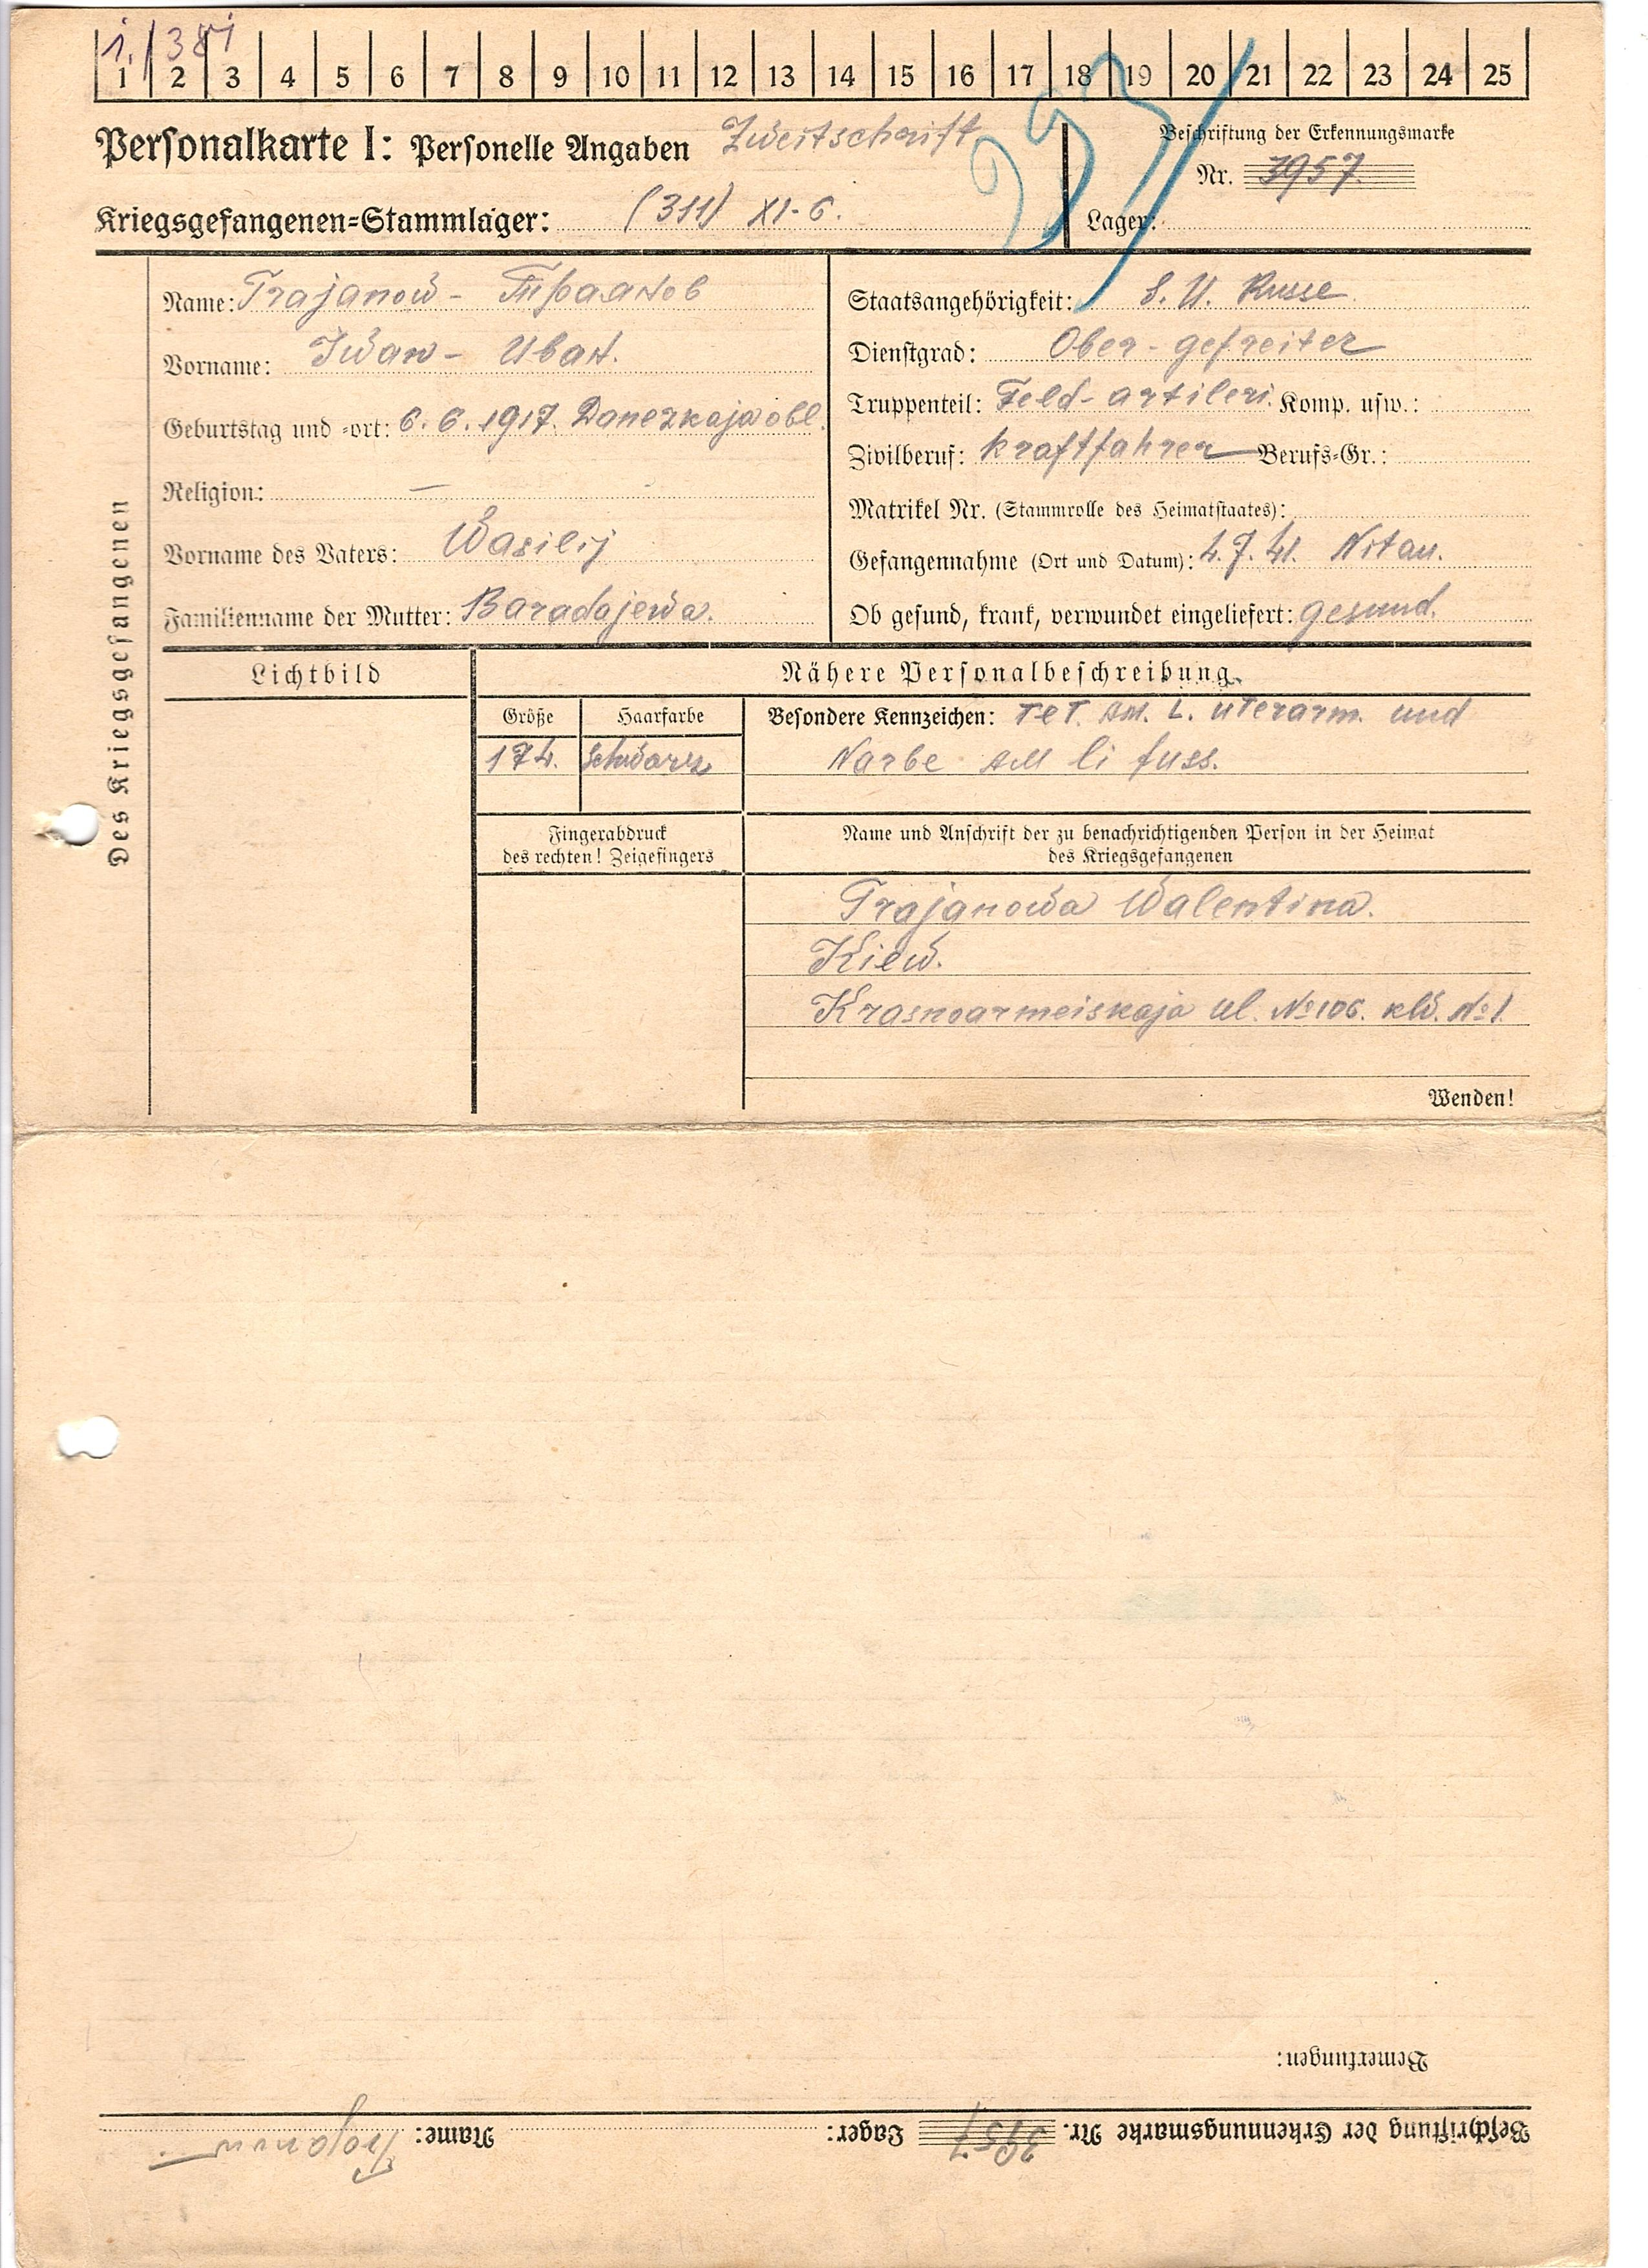 1 2 3 4 5 6 7 8 9 10 11 12 13 14 15 16 17 18 19 20 21 22 23 24 25
Personalkarte I: Personelle Angaben Zweitschrift
Beschriftung der Erkennungsmarke
Nr. 3957
Kriegsgefangenen-Stammlager: (311) XI-C.
Lager:
Des Kriegsgefangenen
Name: Trajanow -
Vorname: Iwan - Иван.
Geburtstag und -ort: 6. 6. 1917. Danezkaja obl.
Religion: —
Vorname des Vaters: Wasilij
Familienname der Mutter: Baradajewa.
Staatsangehörigkeit: S. U. Russe
Dienstgrad: Ober-gefreiter
Truppenteil: Feld-artileri. Komp. usw.:
Zivilberuf: kraftfahrer Berufs-Gr.:
Matrikel Nr. (Stammrolle des Heimatstaates):
Gefangennahme (Ort und Datum): 4. 7. 41. Nitau.
Ob gesund, krank, verwundet eingeliefert: gesund.
Lichtbild
Nähere Personalbeschreibung
Größe Haarfarbe
174. schwarz
Besondere Kennzeichen: Tet. am. L. uterarm. und
Narbe am li fuss.
Fingerabdruck
des rechten! Zeigefingers
Name und Anschrift der zu benachrichtigenden Person in der Heimat
des Kriegsgefangenen
Trajanowa Walentina.
Kiew.
Krasnoarmeiskaja ul. №106. kw. №1.
Wenden!
Bemerkungen:
Beschriftung der Erkennungsmarke Nr. 3957 Lager: Name: Trajanow